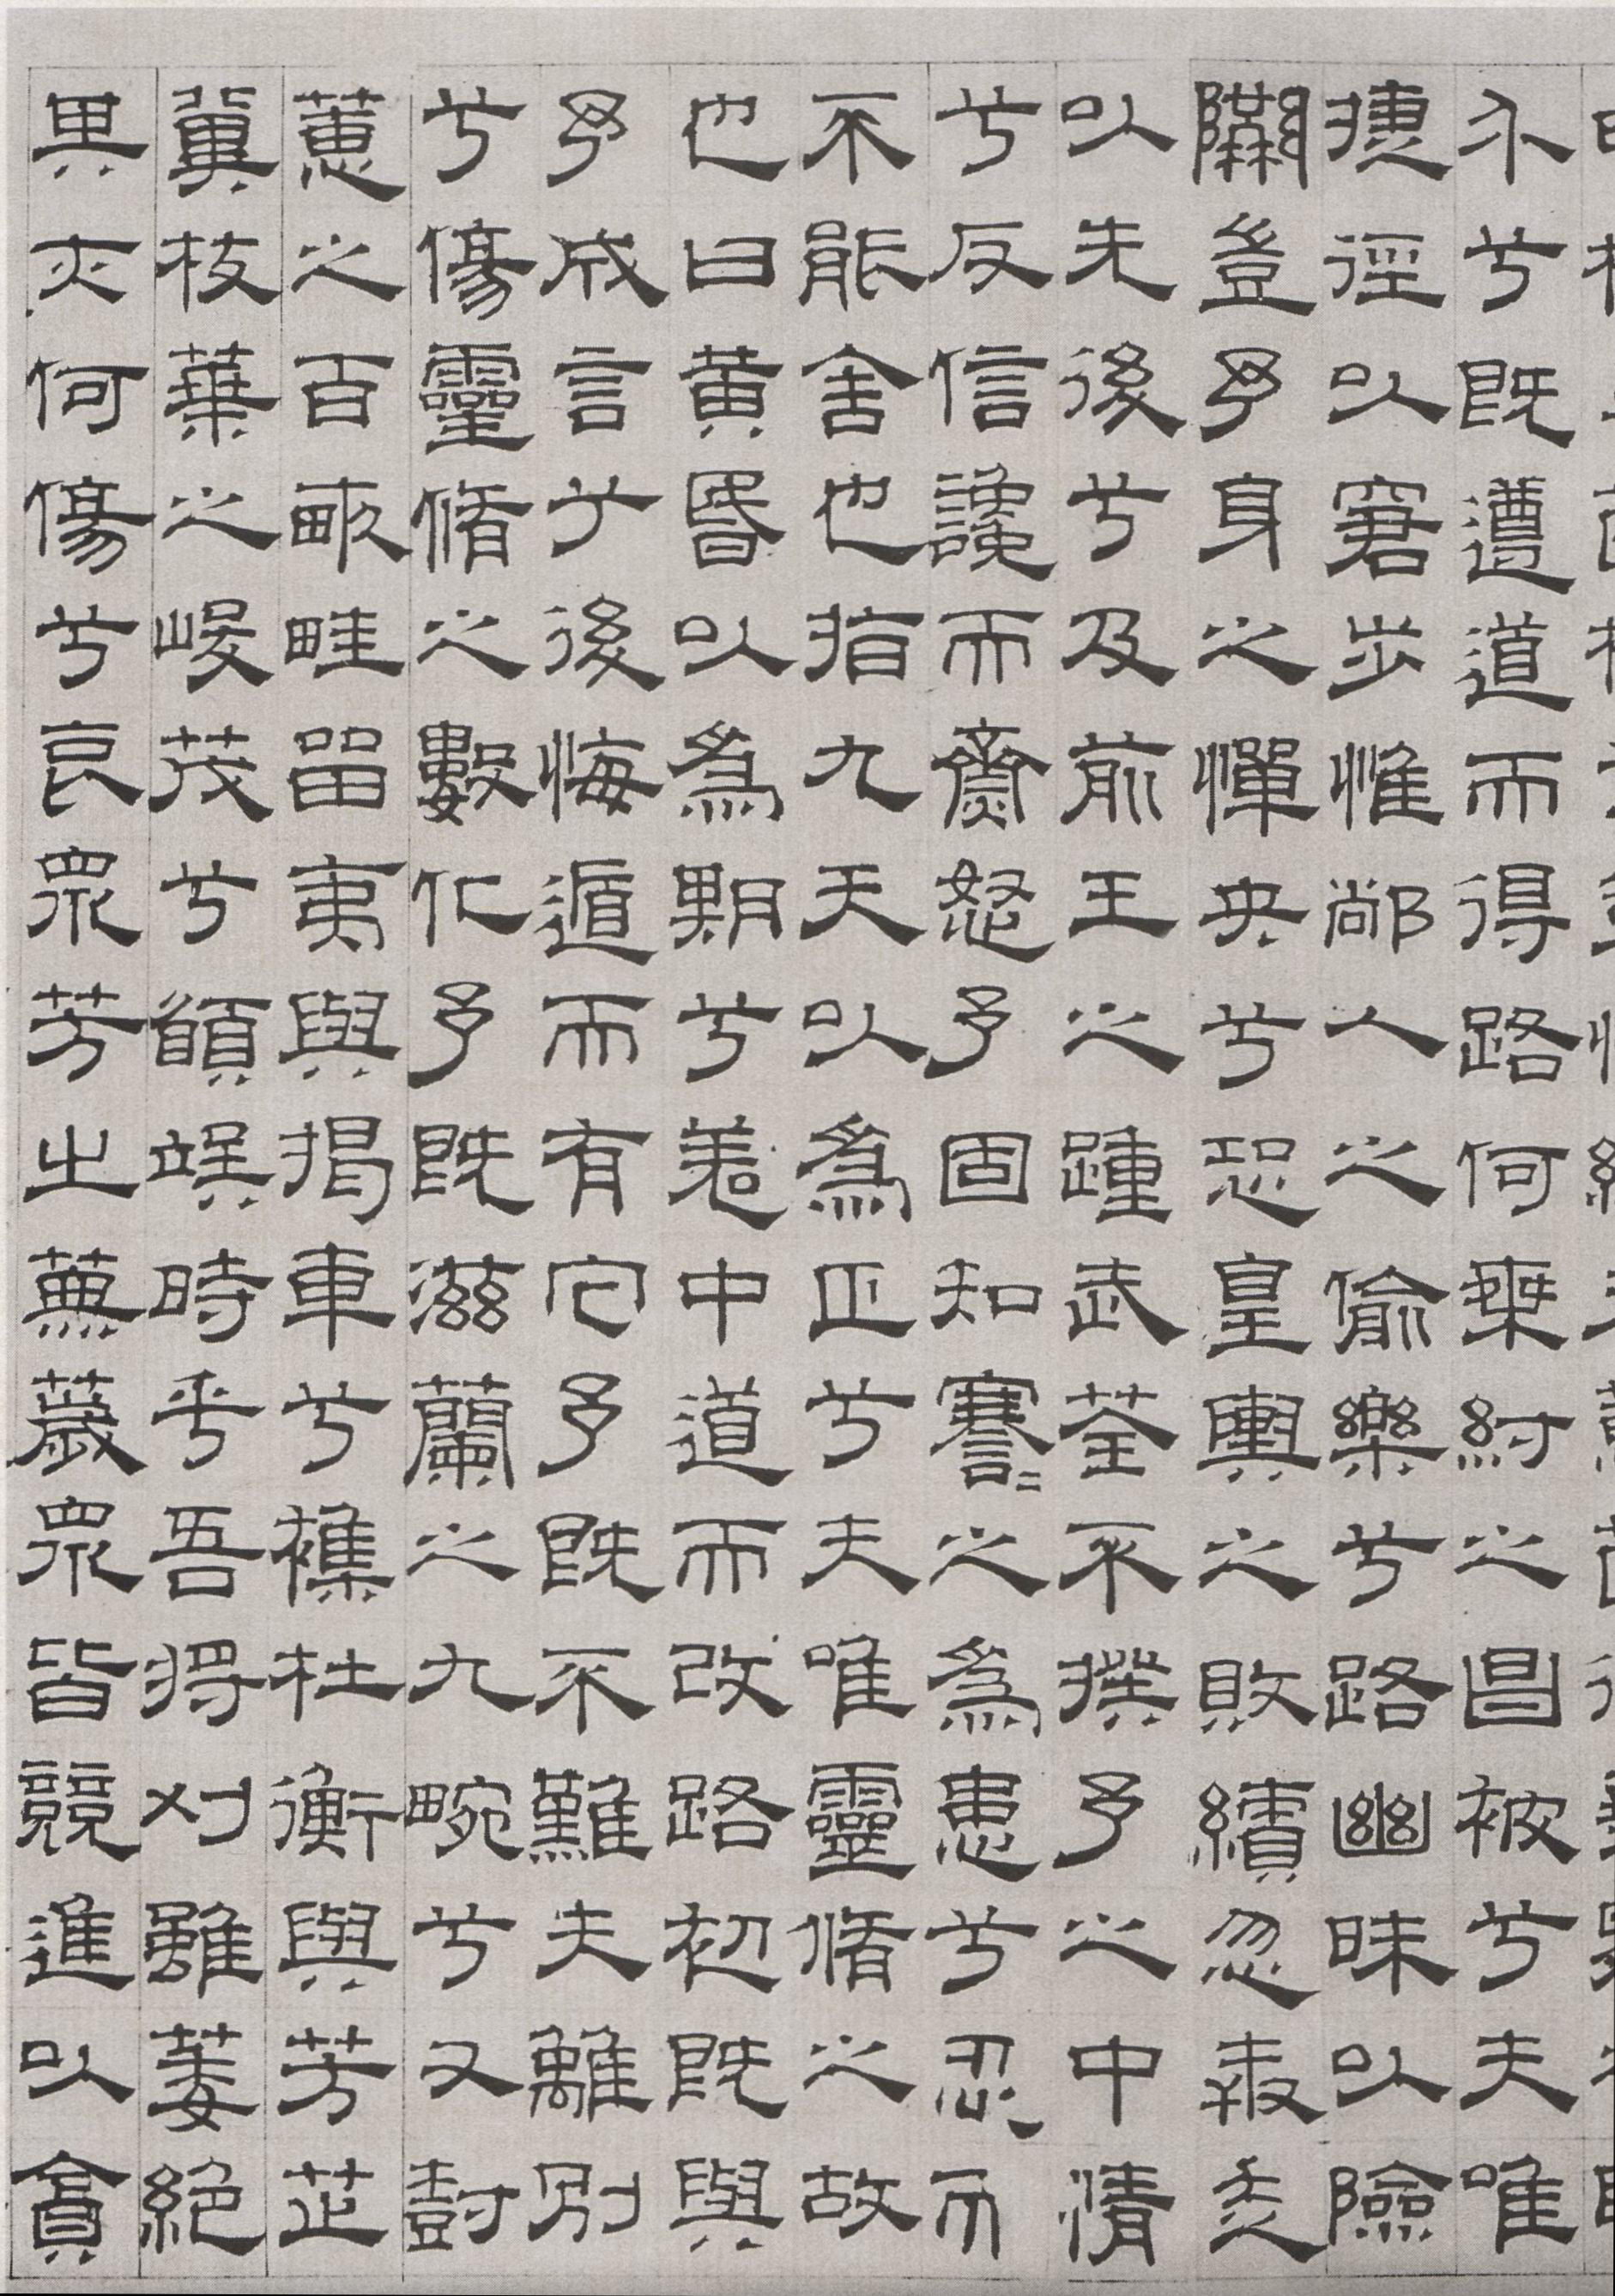 介兮既遵道而得路何桀紂之昌被兮夫唯
捷徑以窘步惟黨人之偷樂兮路幽昧以險
隘豈予身之憚央兮恐皇輿之敗績忽奔走
以先後兮及前王之踵武荃不揆予之中情
兮反信讒而齌怒予固知謇〻之為患兮忍而
不能舍也指九天以為正兮夫唯靈脩之故
也曰黃昏以為期兮羌中道而改路初既與
予成言兮後悔遁而有它予既不難夫離別
兮傷靈脩之數化予既滋蘭之九畹兮又樹
蕙之百畝畦留夷與揭車兮雜杜衡與芳芷
冀枝葉之峻茂兮願竢時乎吾將刈雖萎絕
其亦何傷兮哀眾芳之蕪薉眾皆競進以貪